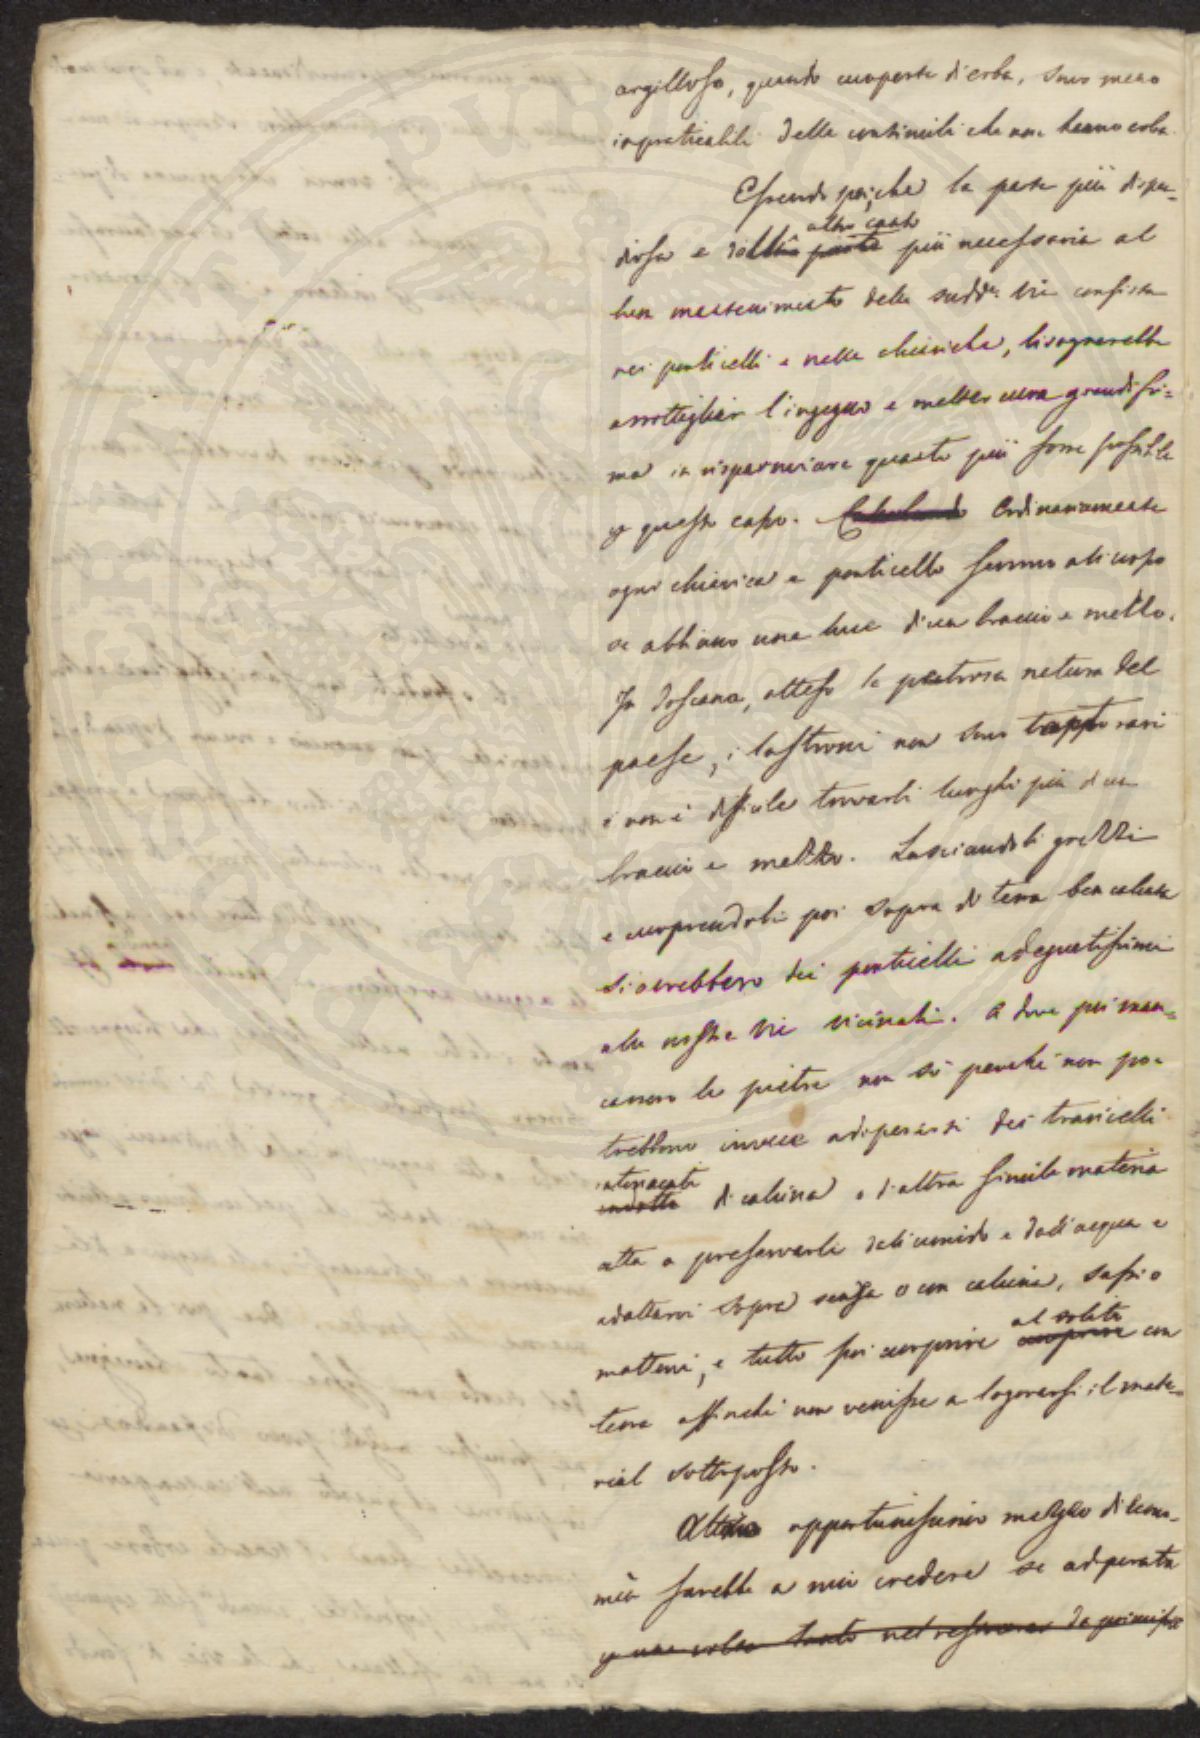 argilloso, quando cuoperte di erba, sono meno
impraticabili delle contimili che non hanno erba.
Essendo poi, che la parte più dispen-
diosa e dall' altro canto parte più necessaria al
ben mantenimento delle sudd.e vie consista
nei ponticelli e nelle chiaviche, bisognerebbe
assottigliar l'ingegno e metter cura grandissi-
ma in risparmiare quanto più fosse possibile
questo capo. Calcolando Ordinariamente
ogni chiavica e ponticello
se abbiano una luce di un braccio e mezzo.
In Toscana, atteso la petrosa natura del
paese, i lastroni non sono troppo rari
e non è difficile trovarli lunghi più di un
braccio e mezzo. Lasciandoli grezzi
e cuoprendoli poi sopra di terra ben calcata
si averebbero dei ponticelli adequatissimi
alle nostre vie vicinali. E dove poi man-
cassero le pietre non sò perché non po-
trebbero invece adoperarsi dei travicelli
intonacati
indotti di calcina o d'altra simile materia
atta a preservarli dall'umido e dall'acqua e
adattarvi sopra senza o con calcina, sassi o
mattoni, e tutto poi cuoprire al solito cuoprire con
terra affinché non venisse a logorarsi il mate-
rial sottoposto.
Altro opportunissimo mezzo di econo-
mia sarebbe a mio credere se adoperata
una volta tanto nel da principio